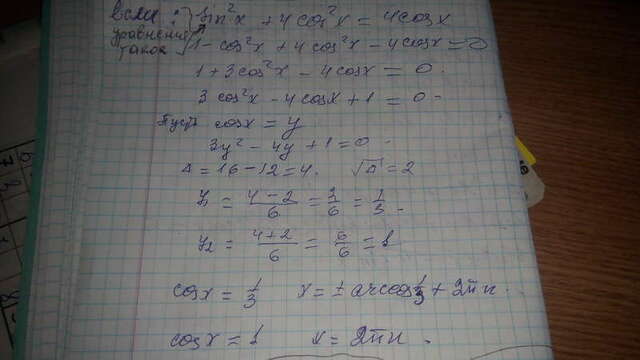 если уравнение такое: sin²x + 4cos²x = 4cosx
1 - cos²x + 4cos²x - 4cosx = 0
1 + 3cos²x - 4cosx = 0.
3cos²x - 4cosx + 1 = 0
Пусть cosx = y
3y² - 4y + 1 = 0
Δ = 16 - 12 = 4. √Δ = 2
y₁ = (4-2)/6 = 2/6 = 1/3.
y₂ = (4+2)/6 = 6/6 = 1
cosx = 1/3 x = ± arccos 1/3 + 2πn.
cosx = 1 x = 2πn.